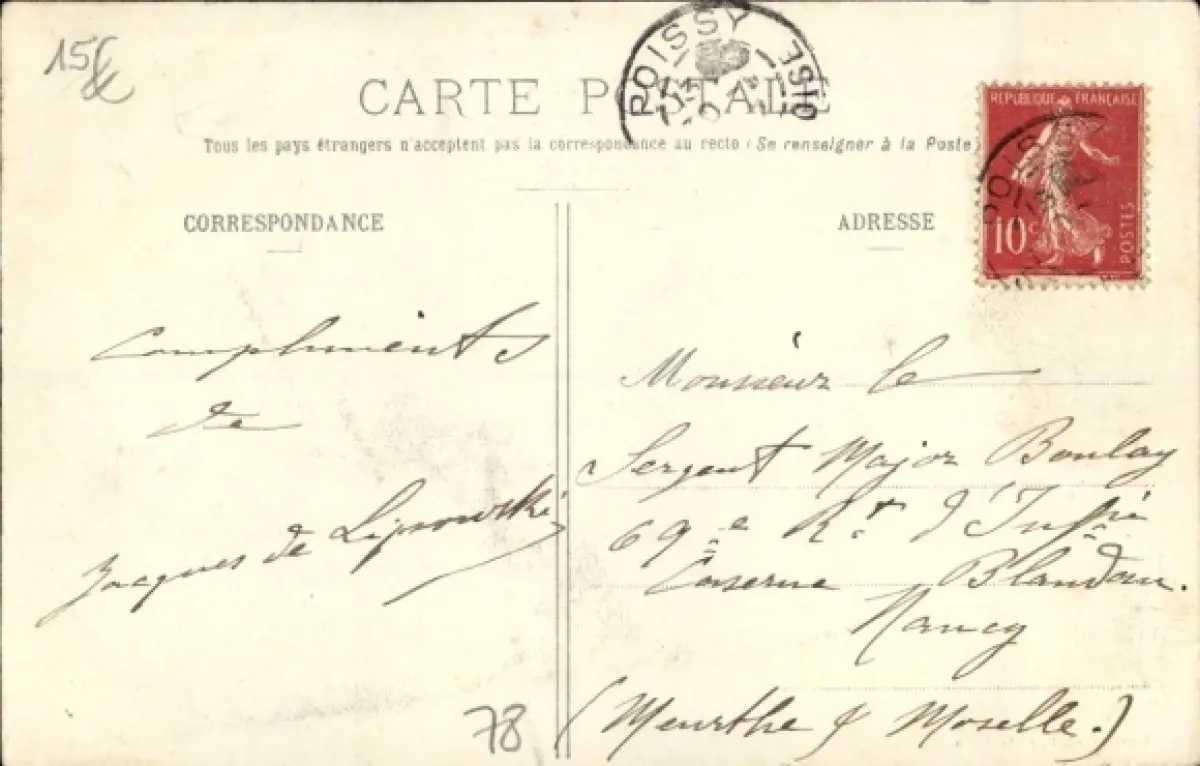 15€
CARTE POSTALE
POISSY
OISE
Tous les pays étrangers n'acceptent pas la correspondance au recto (Se renseigner à la Poste)
CORRESPONDANCE
ADRESSE
REPUBLIQUE FRANÇAISE
10c
POSTES
POIS
Compliments
de
Jacques de Lipowski
Monsieur le
Sergent Major Boulay
69e Rt d'Infie
Caserne Blandan.
Nancy
(Meurthe & Moselle.)
78